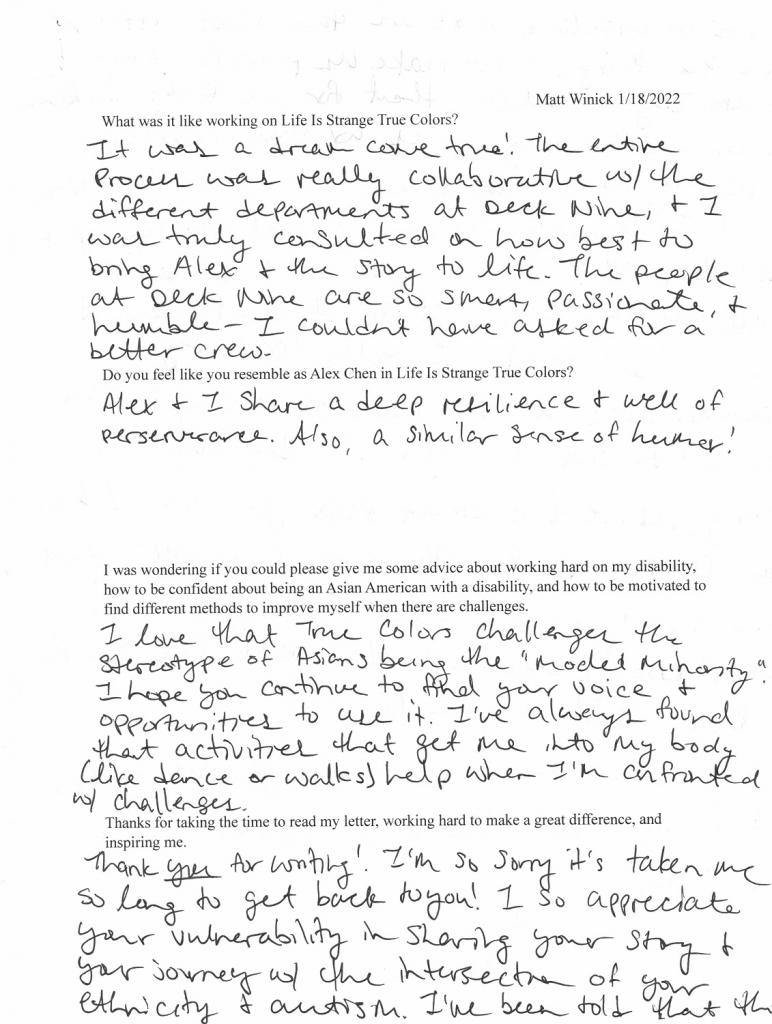 Matt Winick 1/18/2022
What was it like working on Life Is Strange True Colors?
It was a dream come true! The entire
process was really collaborative w/ the
different departments at Deck Nine, + I
was truly consulted on how best to
bring Alex + the story to life. The people
at Deck Nine are so smart, passionate, +
humble – I couldn't have asked for a
better crew.
Do you feel like you resemble as Alex Chen in Life Is Strange True Colors?
Alex + I share a deep resilience + well of
perserverance. Also, a similar sense of humor!
I was wondering if you could please give me some advice about working hard on my disability,
how to be confident about being an Asian American with a disability, and how to be motivated to
find different methods to improve myself when there are challenges.
I love that True Colors challenges the
stereotype of Asians being the "Model Minority".
I hope you continue to find your voice +
opportunities to use it. I've always found
that activities that get me into my body
(like dance or walks) help when I'm confronted
w/ challenges.
Thanks for taking the time to read my letter, working hard to make a great difference, and
inspiring me.
Thank you for writing! I'm so sorry it's taken me
so long to get back to you! I so appreciate
your vulnerability in sharing your story +
your journey w/ the intersection of your
ethnicity + autism. I've been told that th